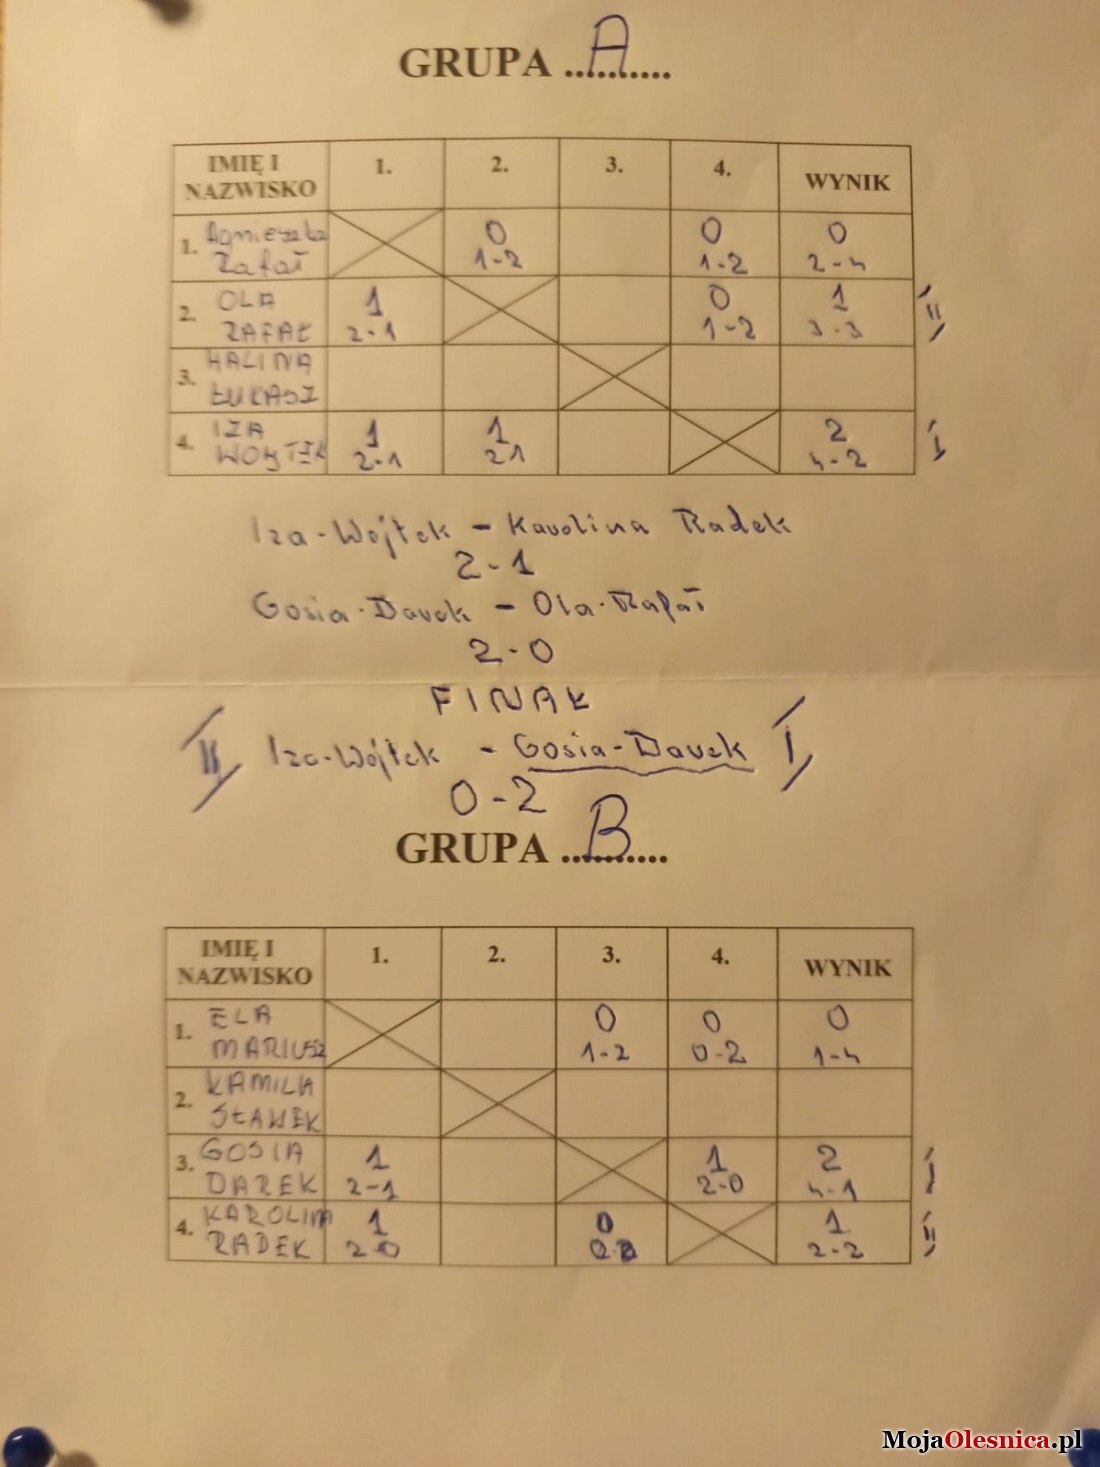 GRUPA ..A..
IMIĘ I NAZWISKO 1. 2. 3. 4. WYNIK
1. Agnieszka 0 0 0
Rafał 1-2 1-2 2-4
2. OLA 1 0 1 II
RAFAŁ 2-1 1-2 3-3
3. HALINA
ŁUKASZ
4. IZA 1 1 2 I
WOJTEK 2-1 21 4-2
Iza-Wojtek - Karolina Radek
2-1
Gosia-Darek - Ola-Rafał
2-0
FINAŁ
II Iza-Wojtek - Gosia-Darek I
0-2
GRUPA ..B..
IMIĘ I NAZWISKO 1. 2. 3. 4. WYNIK
1. ELA 0 0 0
MARIUSZ 1-2 0-2 1-4
2. KAMILA
SŁAWEK
3. GOSIA 1 1 2 I
DAREK 2-1 2-0 4-1
4. KAROLINA 1 0 1 II
RADEK 2-0 0-2 2-2
MojaOlesnica.pl